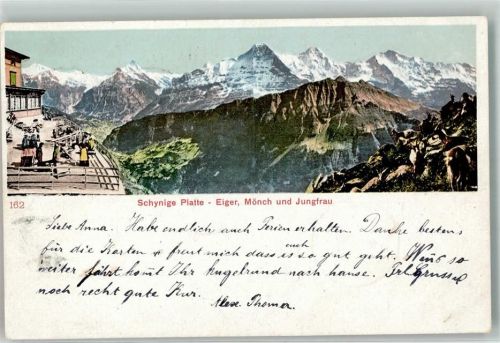 Schynige Platte - Eiger, Mönch und Jungfrau
162
Liebe Anna. Habe endlich auch Ferien erhalten. Danke bestens
für die Karten & freut mich dass es auch so gut geht. Wenn so
weiter fährt komt Ihr kugelrund nach hause. Frl. Grüsse
noch recht gute Kur.
Alex. Thomer